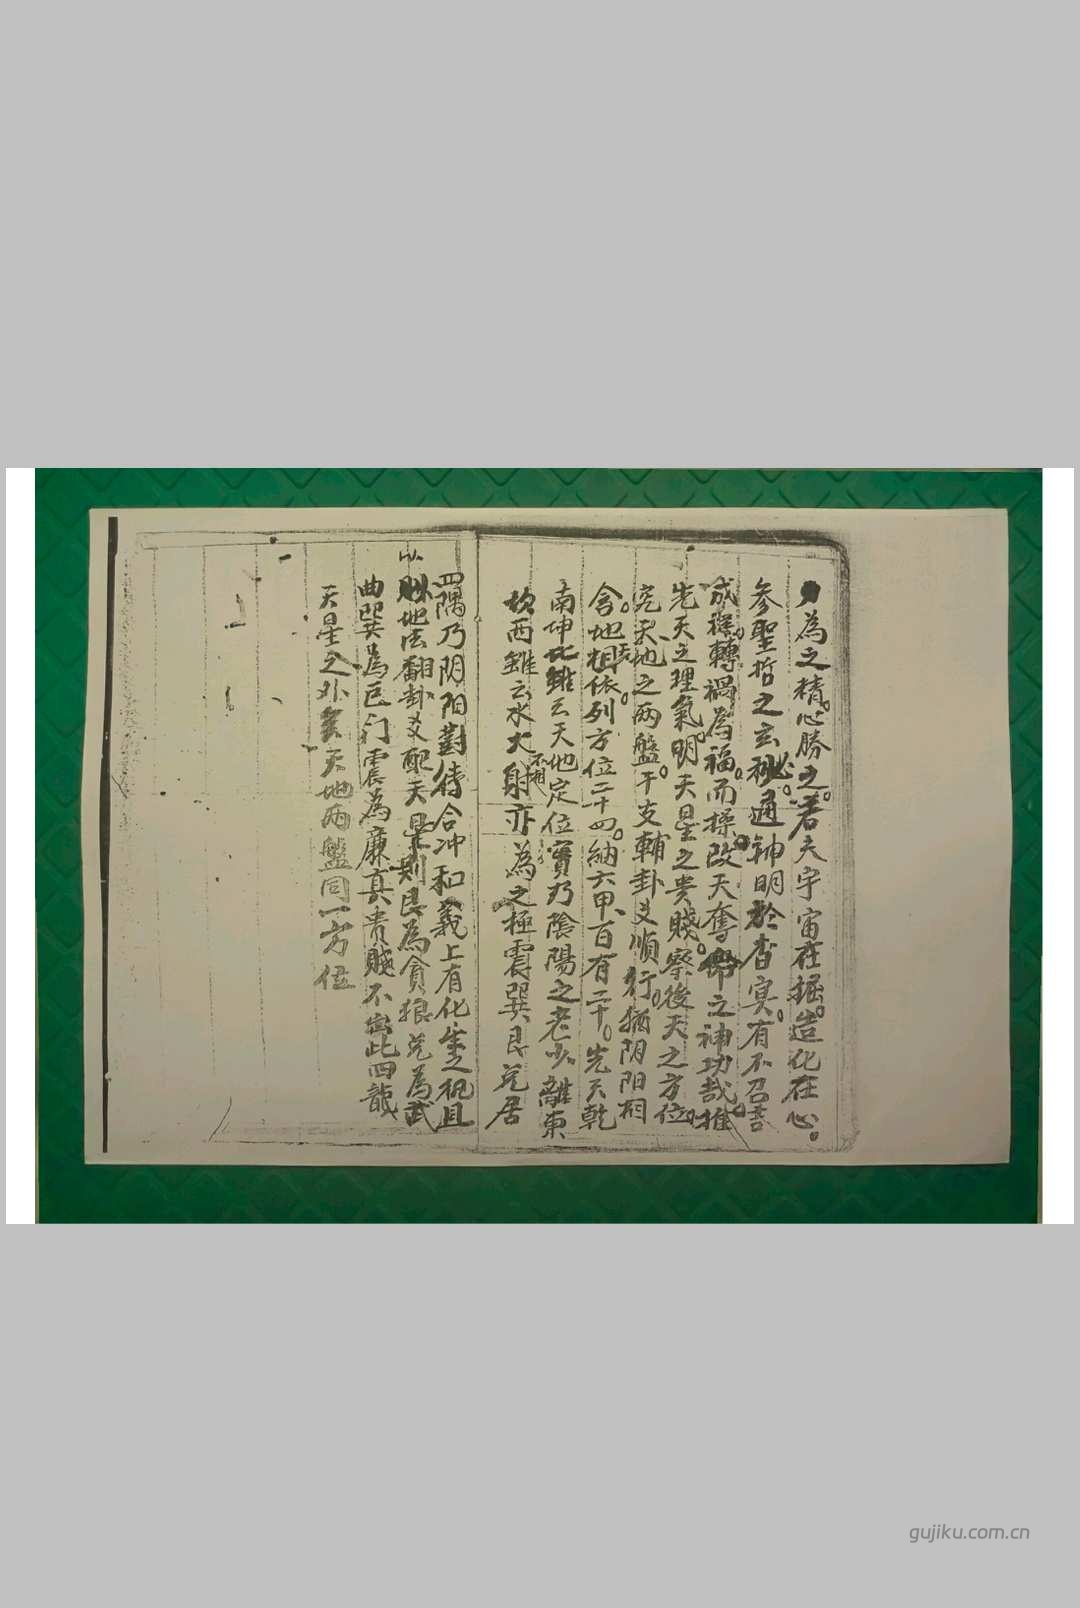 為之精。心勝之。若夫宇宙在握。造化在心。
參聖哲之玄秘。通神明於杳冥。有不召善
成祥。轉禍為福。而操改天奪命之神功哉。推
先天之理氣。明天星之贵賤。察後天之方位。
究天地之两盤。干支輔卦爻順行。猶阴阳相
含。地相依。列方位二十四。納六甲、百有二十。先天乾
南坤北雖云天地定位實乃陰陽之老少離東
坎西雖云水火不相射亦為之極震巽艮兑居
四隅乃阴阳對待合冲和義上有化生之机且
以地法翻卦爻配天星則艮為貪狼兑為武
曲巽為巨门震為廉真贵賤不出此四龍
天星之外矣天地两盤同一方位
gujiku.com.cn